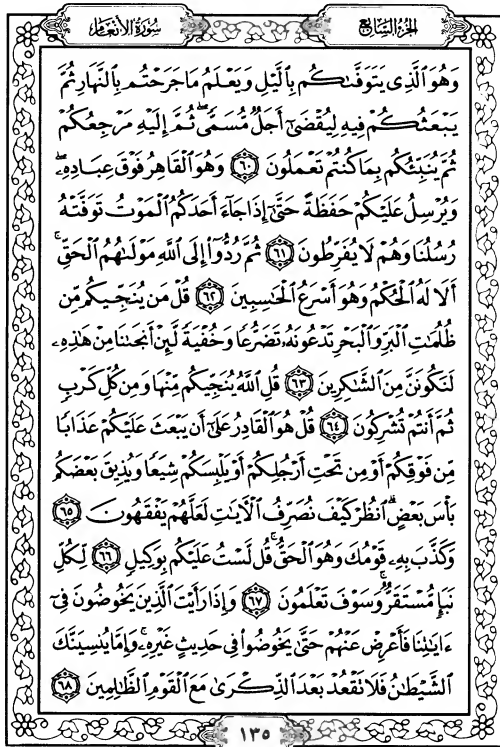 سُورَةُ الأَنْعَام الجُزْءُ السَّابِع
وَهُوَ ٱلَّذِى يَتَوَفَّىٰكُم بِٱلَّيْلِ وَيَعْلَمُ مَا جَرَحْتُم بِٱلنَّهَارِ ثُمَّ
يَبْعَثُكُمْ فِيهِ لِيُقْضَىٰٓ أَجَلٌ مُّسَمًّى ۖ ثُمَّ إِلَيْهِ مَرْجِعُكُمْ
ثُمَّ يُنَبِّئُكُم بِمَا كُنتُمْ تَعْمَلُونَ ٦٠ وَهُوَ ٱلْقَاهِرُ فَوْقَ عِبَادِهِۦ ۖ
وَيُرْسِلُ عَلَيْكُمْ حَفَظَةً حَتَّىٰٓ إِذَا جَآءَ أَحَدَكُمُ ٱلْمَوْتُ تَوَفَّتْهُ
رُسُلُنَا وَهُمْ لَا يُفَرِّطُونَ ٦١ ثُمَّ رُدُّوٓا۟ إِلَى ٱللَّهِ مَوْلَىٰهُمُ ٱلْحَقِّ ۚ
أَلَا لَهُ ٱلْحُكْمُ وَهُوَ أَسْرَعُ ٱلْحَـٰسِبِينَ ٦٢ قُلْ مَن يُنَجِّيكُم مِّن
ظُلُمَـٰتِ ٱلْبَرِّ وَٱلْبَحْرِ تَدْعُونَهُۥ تَضَرُّعًا وَخُفْيَةً لَّئِنْ أَنجَىٰنَا مِنْ هَـٰذِهِۦ
لَنَكُونَنَّ مِنَ ٱلشَّـٰكِرِينَ ٦٣ قُلِ ٱللَّهُ يُنَجِّيكُم مِّنْهَا وَمِن كُلِّ كَرْبٍ
ثُمَّ أَنتُمْ تُشْرِكُونَ ٦٤ قُلْ هُوَ ٱلْقَادِرُ عَلَىٰٓ أَن يَبْعَثَ عَلَيْكُمْ عَذَابًا
مِّن فَوْقِكُمْ أَوْ مِن تَحْتِ أَرْجُلِكُمْ أَوْ يَلْبِسَكُمْ شِيَعًا وَيُذِيقَ بَعْضَكُم
بَأْسَ بَعْضٍ ۗ ٱنظُرْ كَيْفَ نُصَرِّفُ ٱلْـَٔايَـٰتِ لَعَلَّهُمْ يَفْقَهُونَ ٦٥
وَكَذَّبَ بِهِۦ قَوْمُكَ وَهُوَ ٱلْحَقُّ ۚ قُل لَّسْتُ عَلَيْكُم بِوَكِيلٍ ٦٦ لِّكُلِّ
نَبَإٍ مُّسْتَقَرٌّ ۚ وَسَوْفَ تَعْلَمُونَ ٦٧ وَإِذَا رَأَيْتَ ٱلَّذِينَ يَخُوضُونَ فِىٓ
ءَايَـٰتِنَا فَأَعْرِضْ عَنْهُمْ حَتَّىٰ يَخُوضُوا۟ فِى حَدِيثٍ غَيْرِهِۦ ۚ وَإِمَّا يُنسِيَنَّكَ
ٱلشَّيْطَـٰنُ فَلَا تَقْعُدْ بَعْدَ ٱلذِّكْرَىٰ مَعَ ٱلْقَوْمِ ٱلظَّـٰلِمِينَ ٦٨
١٣٥